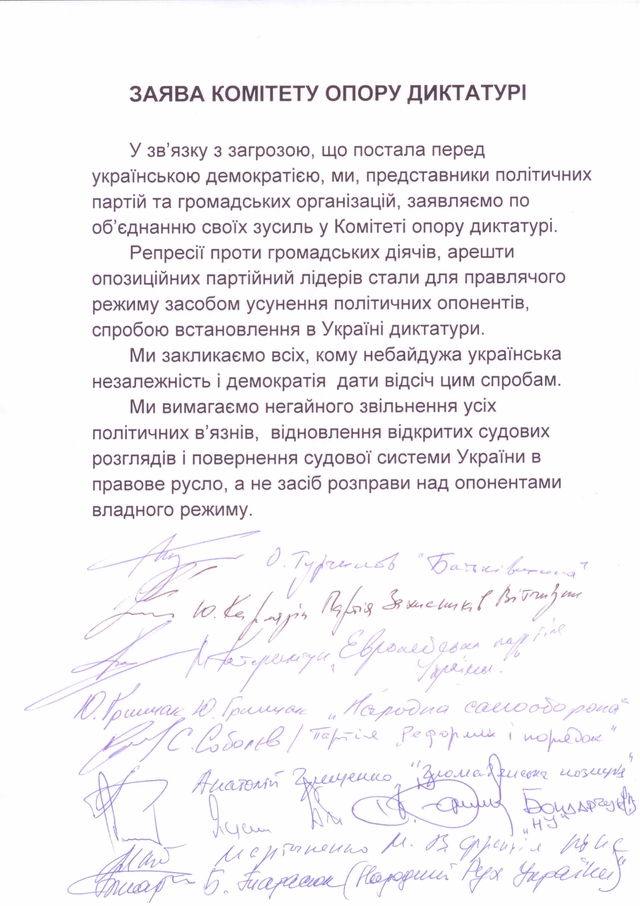 ЗАЯВА КОМІТЕТУ ОПОРУ ДИКТАТУРІ
У зв’язку з загрозою, що постала перед
українською демократією, ми, представники політичних
партій та громадських організацій, заявляємо по
об’єднанню своїх зусиль у Комітеті опору диктатурі.
Репресії проти громадських діячів, арешти
опозиційних партійний лідерів стали для правлячого
режиму засобом усунення політичних опонентів,
спробою встановлення в Україні диктатури.
Ми закликаємо всіх, кому небайдужа українська
незалежність і демократія дати відсіч цим спробам.
Ми вимагаємо негайного звільнення усіх
політичних в’язнів, відновлення відкритих судових
розглядів і повернення судової системи України в
правове русло, а не засіб розправи над опонентами
владного режиму.
О. Турчинов "Батьківщина"
Ю. Кармазін Партія Захисників Вітчизни
М. Катеринчук "Європейська партія
України"
Ю. Грицак Ю. Грицак "Народна самооборона"
С. Соболєв / Партія "Реформи і порядок"
Анатолій Гриценко "Громадянська позиція"
Бондарчук
"НУ"
Мартиненко М. В
Б. Тарасюк (Народний Рух України)